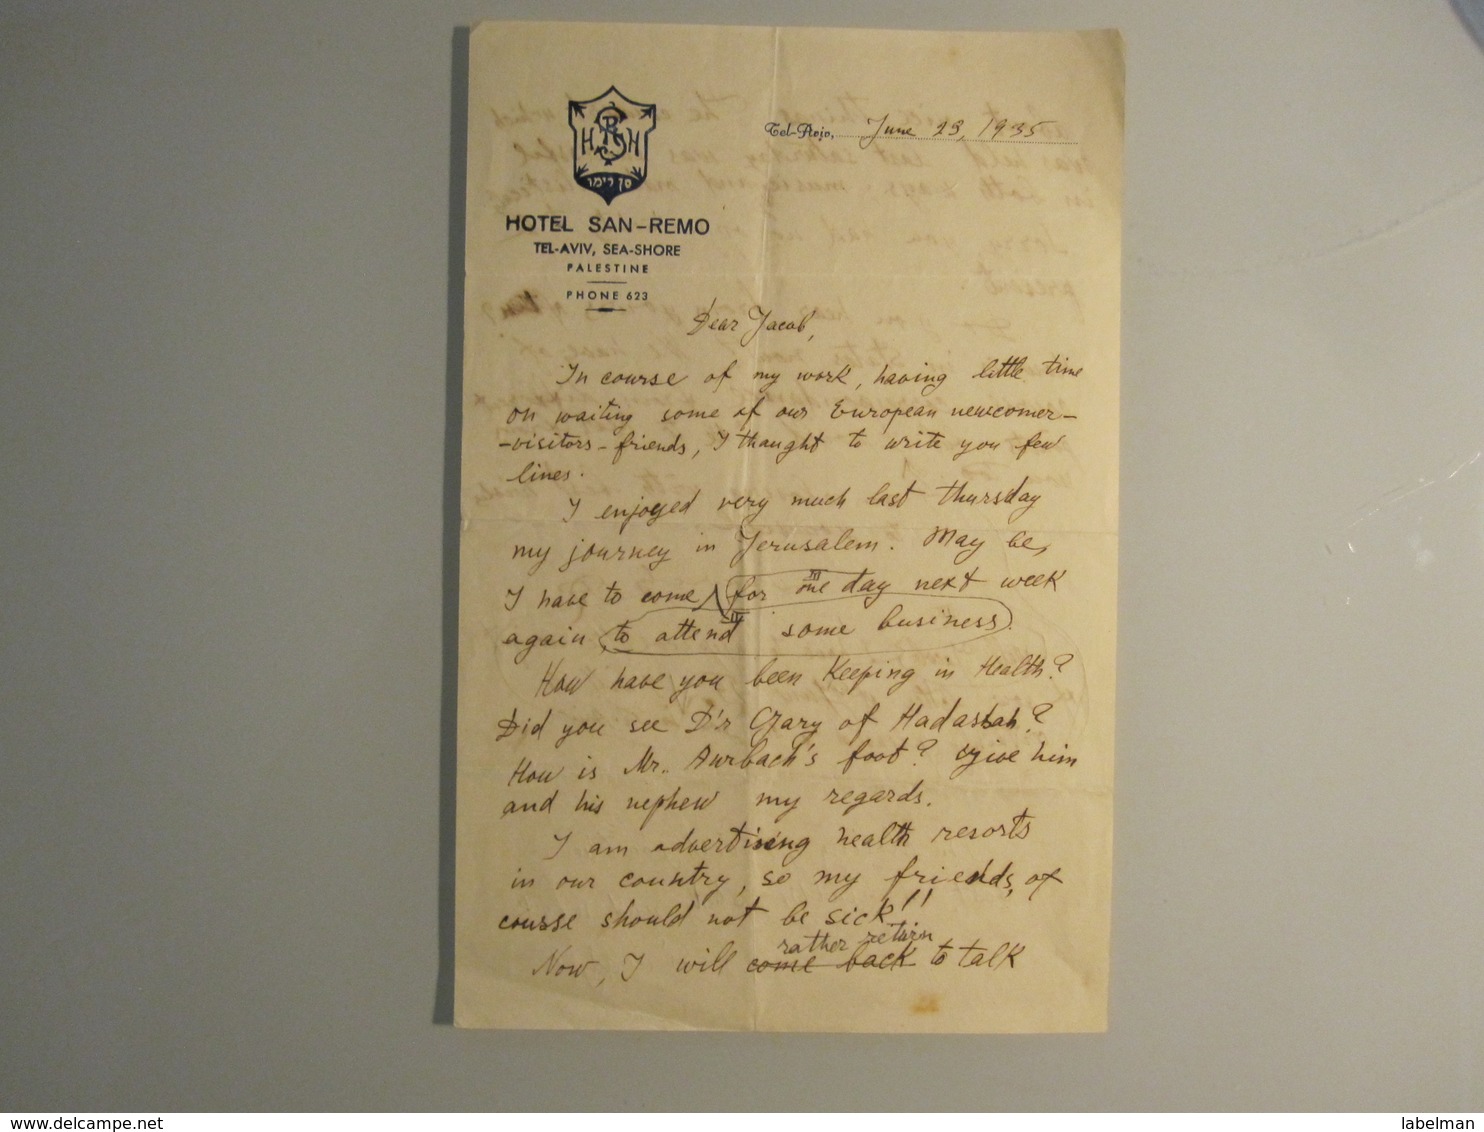 SR
H H
סן רימו
HOTEL SAN-REMO
TEL-AVIV, SEA-SHORE
PALESTINE
PHONE 623
Tel-Aviv, June 23, 1935
Dear Jacob,
In course of my work, having little time
on waiting some of our European newcomer-
-visitors-friends, I thought to write you few
lines.
I enjoyed very much last thursday
my journey in Jerusalem. May be,
I have to come for one day next week
III
again to attend some business.
II
How have you been Keeping in Health?
Did you see D'r Gary of Hadassah?
How is Mr. Aurbach's foot? Give him
and his nephew my regards.
I am advertising health resorts
in our country, so my friends, of
course should not be sick!!
rather return
Now, I will come back to talk
www.delcampe.net
labelman